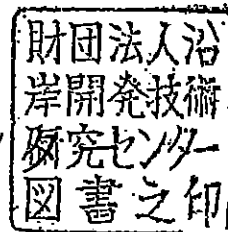 財団法人沿
岸開発技術
研究センター
図書之印